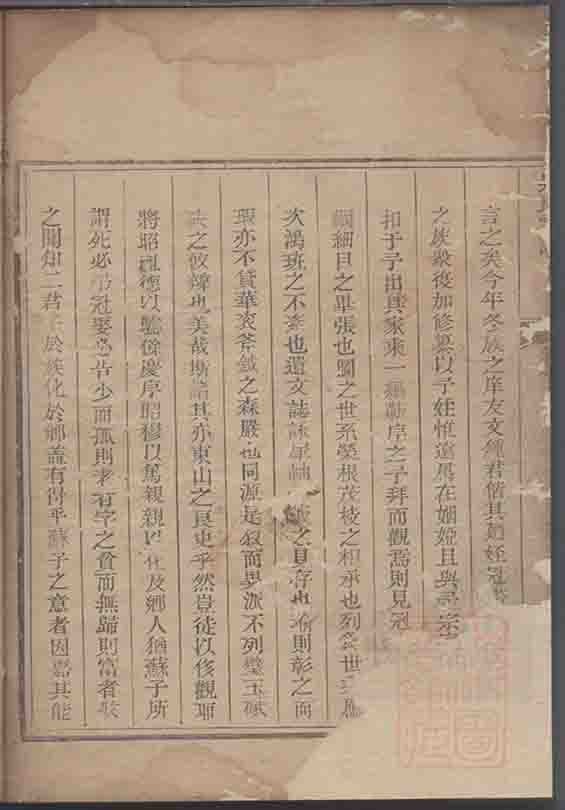 言之矣今年冬族之庠友文經君偕其姪冠
之族眾復加修纂以予姪惟遠居在姻婭且與宗
扣于予出其家乘一編丐序之予拜而觀焉則見冠
綱細目之畢張也圖之世系榮根茂枝之相承也列世
次鴻班之不紊也遺文誌詠之具存也瑜則彰之而
瑕亦不貸華袞斧鉞之森嚴也同源是叙而異派不列璧玉碔
砆之攸辨也美哉斯譜其亦東山之良史乎然豈徒以侈觀耶
將昭祖德以騐餘慶序昭穆以篤親親以化及鄉人猶蘇子所
謂死必吊冠娶必告少而孤則老者字之貧而無歸則富者收
之聞知二君于於族化於鄉盖有得乎蘇子之意者因嘉其能